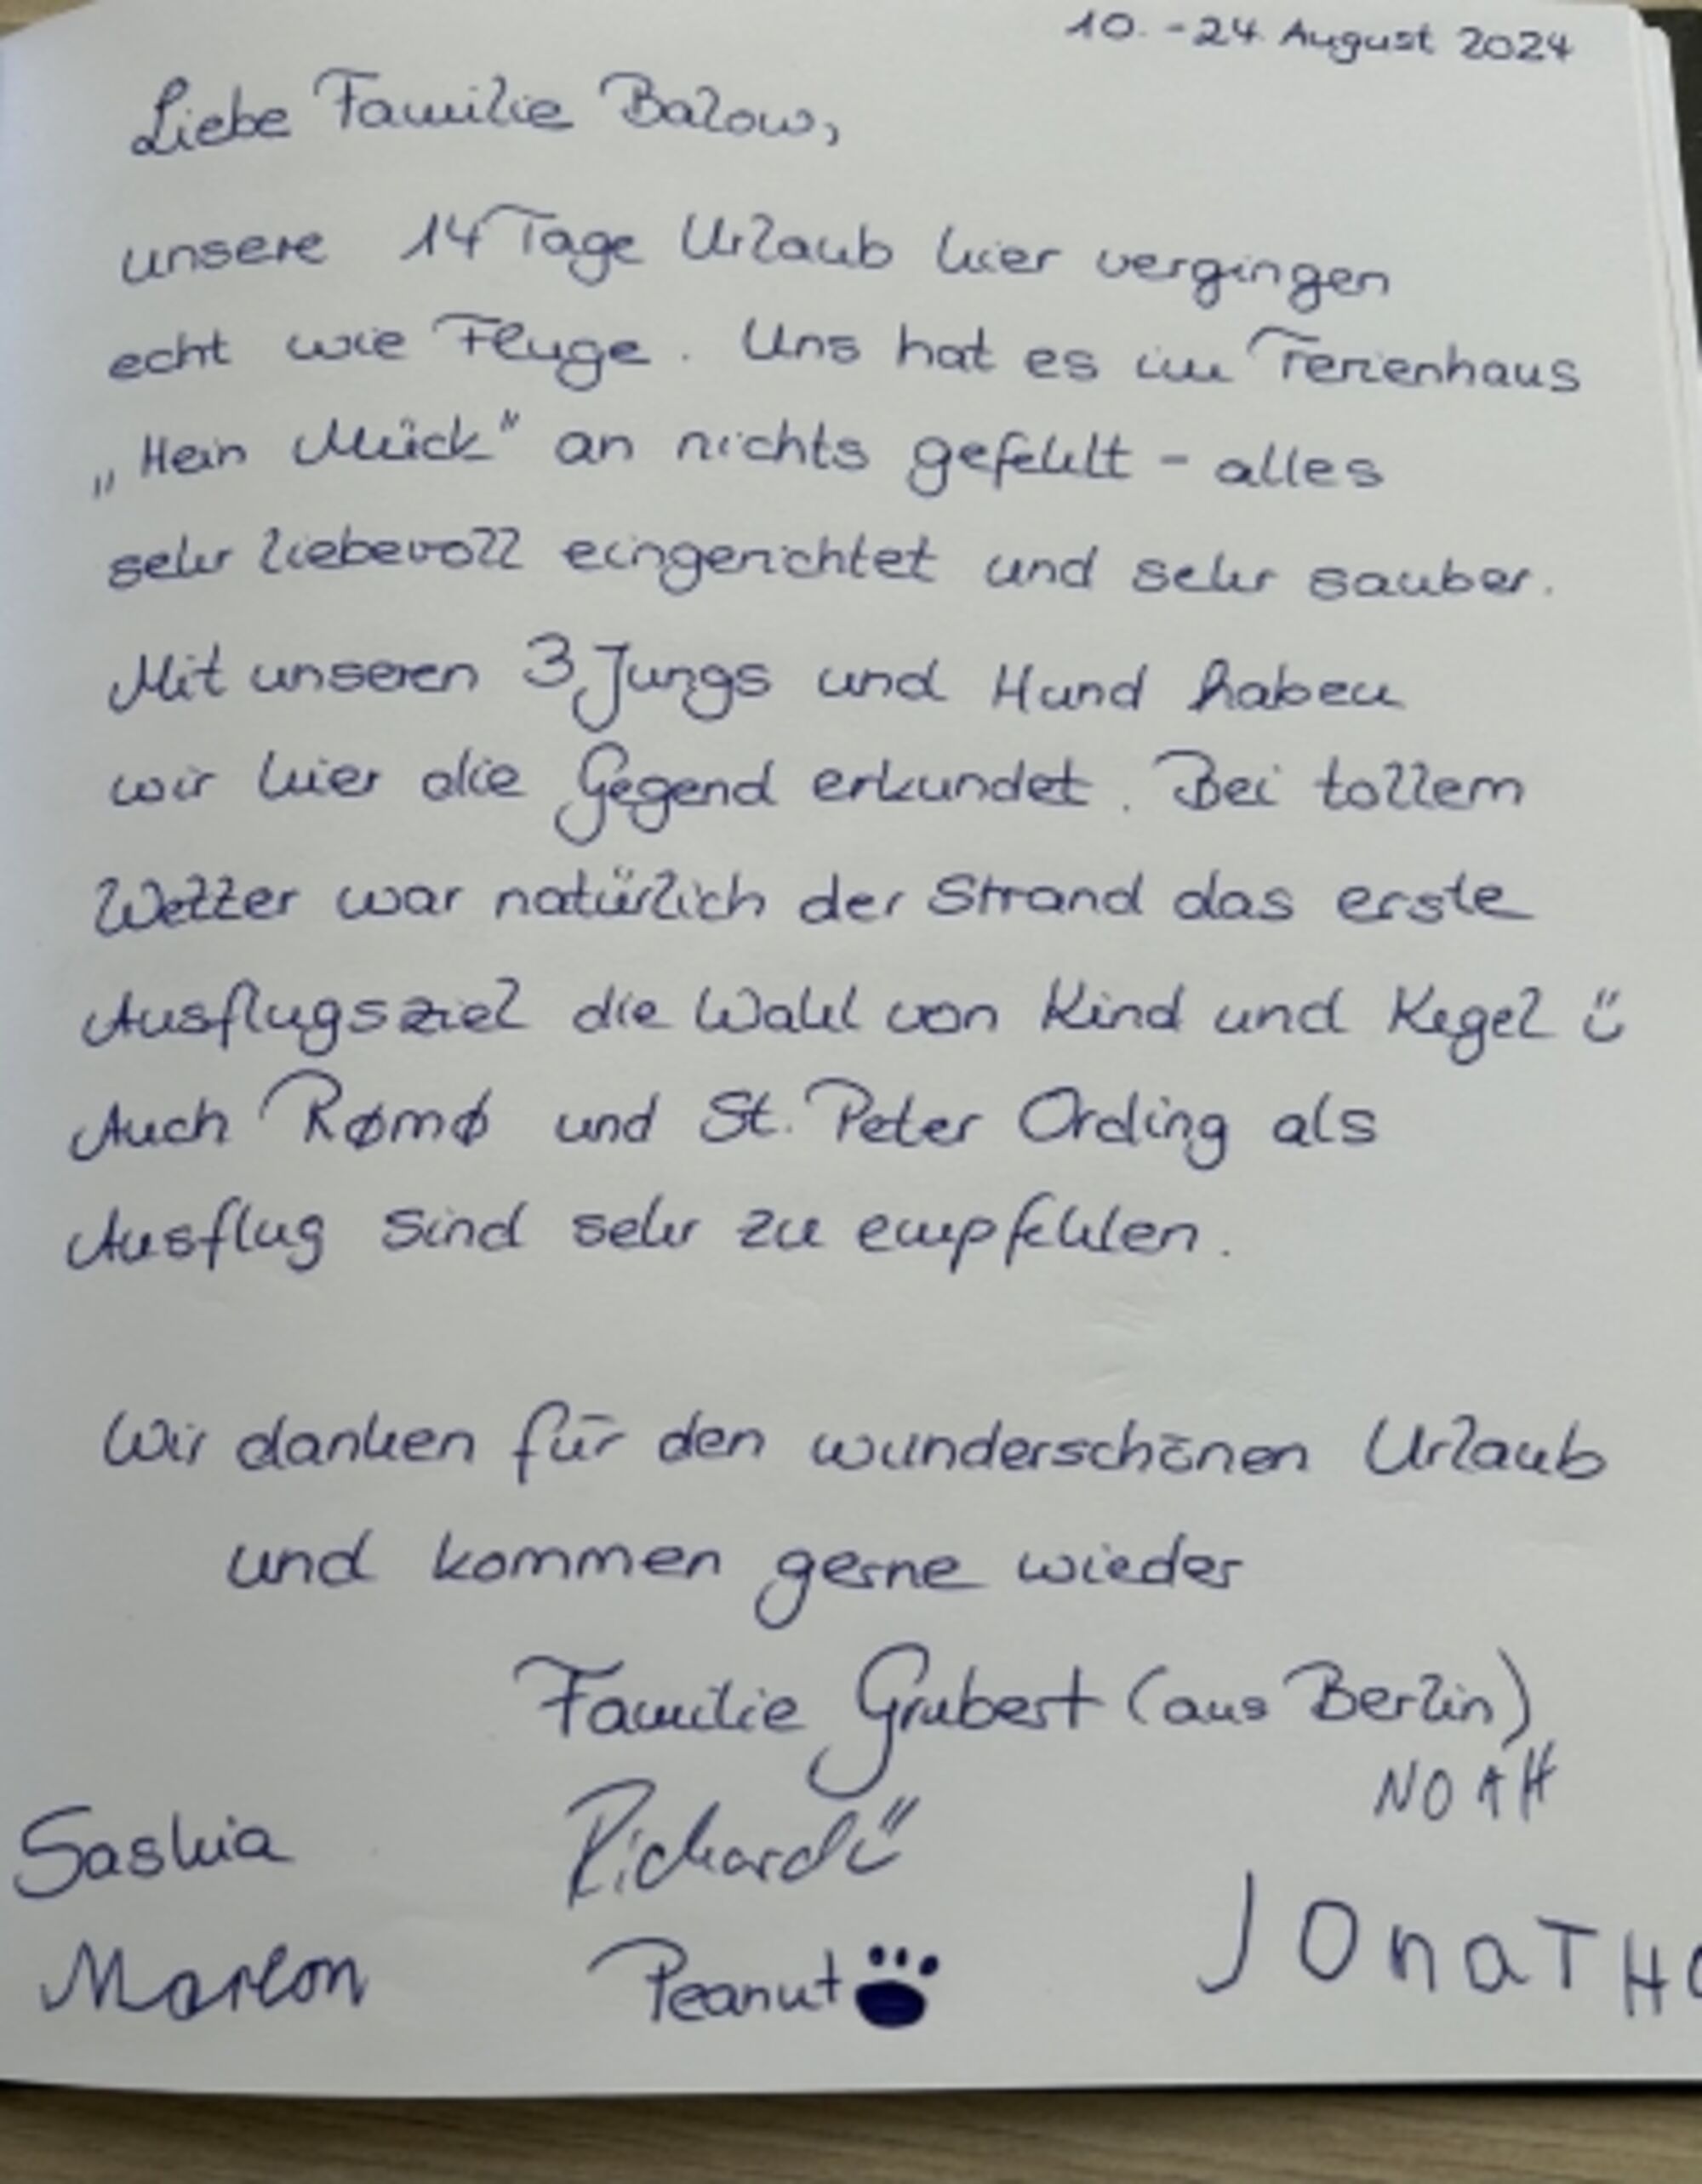 10. - 24. August 2024
Liebe Familie Balow,
unsere 14 Tage Urlaub hier vergingen
echt wie Fluge. Uns hat es im Ferienhaus
„Hein Mück" an nichts gefehlt - alles
sehr liebevoll eingerichtet und sehr sauber.
Mit unseren 3 Jungs und Hund haben
wir hier die Gegend erkundet. Bei tollem
Wetter war natürlich der Strand das erste
Ausflugsziel die Wahl von Kind und Kegel ü
Auch Rømø und St. Peter Ording als
Ausflug sind sehr zu empfehlen.
Wir danken für den wunderschönen Urlaub
und kommen gerne wieder
Familie Grubert (aus Berlin)
NOAH
Saskia Richard ü
JOnaTH
Marlon Peanut